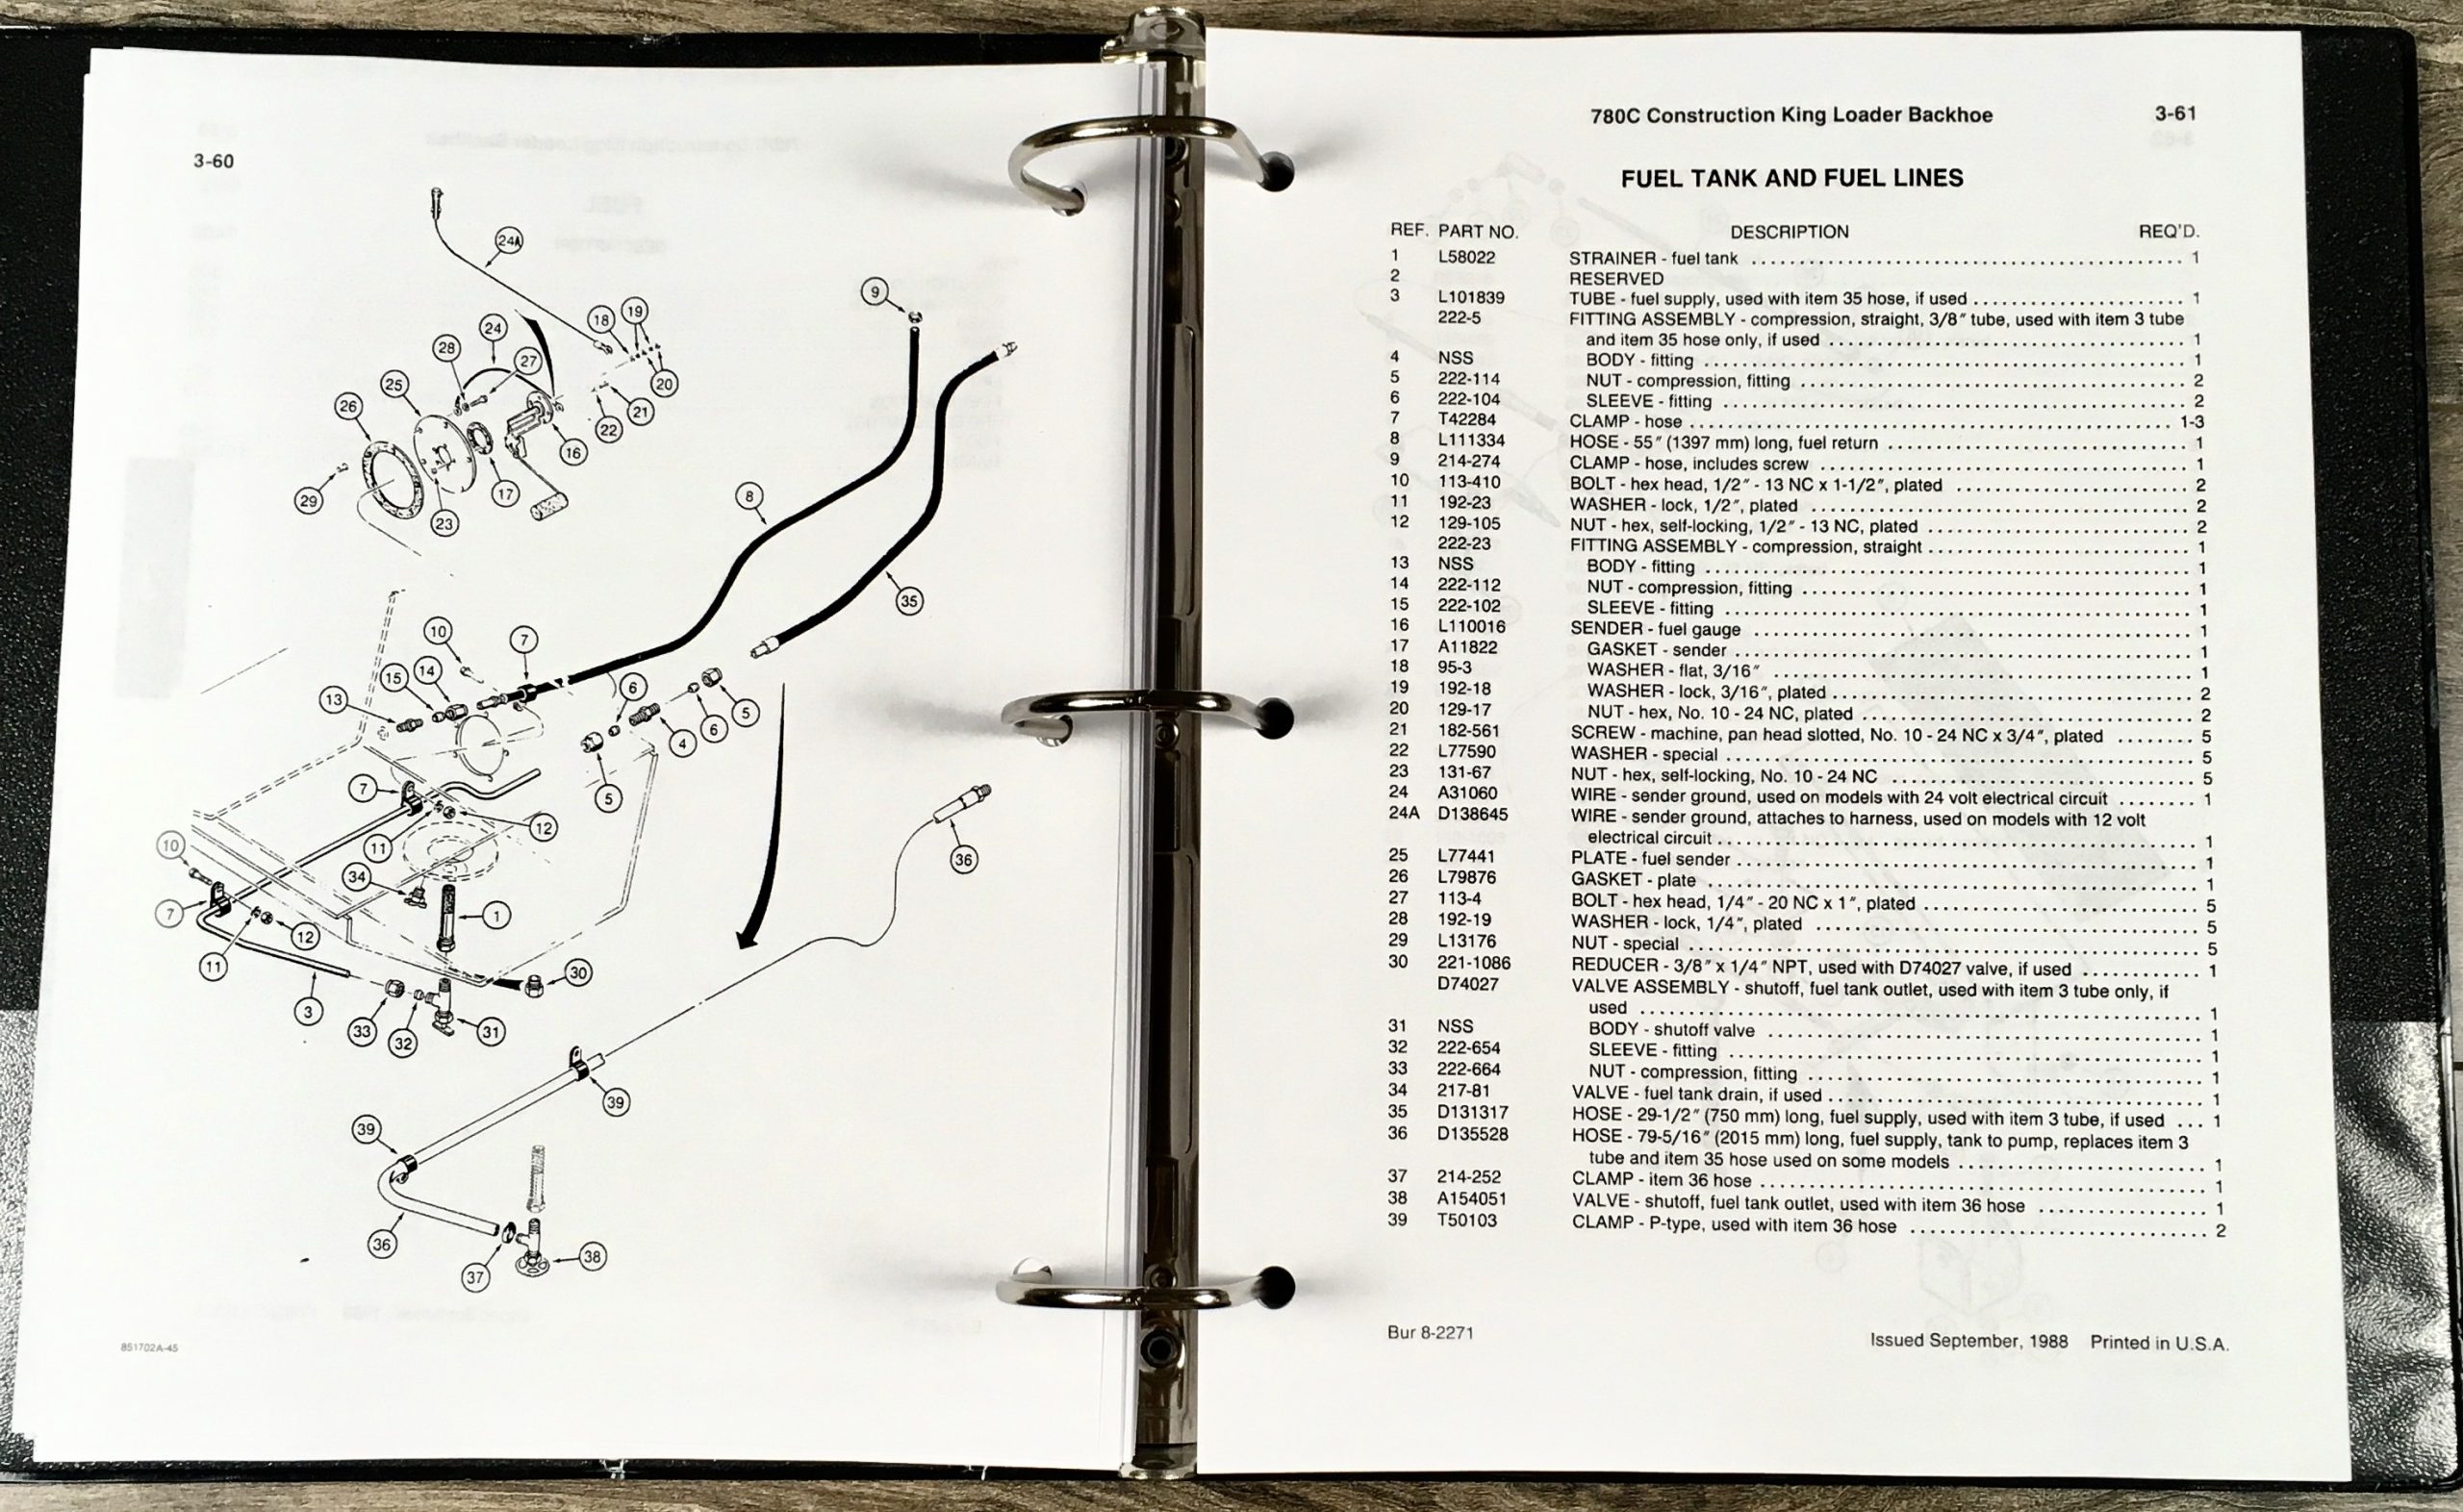 3-60
24A
9
19
18
24
28
27
20
25
21
26
22
16
17
29
23
8
35
10
7
14
15
6
13
5
6
4
7
5
12
11
10
36
34
7
1
12
11
30
3
33
32
31
39
39
36
38
37
851702A-45
780C Construction King Loader Backhoe 3-61
FUEL TANK AND FUEL LINES
REF. PART NO. DESCRIPTION REQ'D.
1 L58022 STRAINER - fuel tank ........ 1
2 RESERVED
3 L101839 TUBE - fuel supply, used with item 35 hose, if used ........ 1
222-5 FITTING ASSEMBLY - compression, straight, 3/8" tube, used with item 3 tube
and item 35 hose only, if used ........ 1
4 NSS BODY - fitting ........ 1
5 222-114 NUT - compression, fitting ........ 2
6 222-104 SLEEVE - fitting ........ 2
7 T42284 CLAMP - hose ........ 1-3
8 L111334 HOSE - 55" (1397 mm) long, fuel return ........ 1
9 214-274 CLAMP - hose, includes screw ........ 1
10 113-410 BOLT - hex head, 1/2" - 13 NC x 1-1/2", plated ........ 2
11 192-23 WASHER - lock, 1/2", plated ........ 2
12 129-105 NUT - hex, self-locking, 1/2" - 13 NC, plated ........ 2
222-23 FITTING ASSEMBLY - compression, straight ........ 1
13 NSS BODY - fitting ........ 1
14 222-112 NUT - compression, fitting ........ 1
15 222-102 SLEEVE - fitting ........ 1
16 L110016 SENDER - fuel gauge ........ 1
17 A11822 GASKET - sender ........ 1
18 95-3 WASHER - flat, 3/16" ........ 1
19 192-18 WASHER - lock, 3/16", plated ........ 2
20 129-17 NUT - hex, No. 10 - 24 NC, plated ........ 2
21 182-561 SCREW - machine, pan head slotted, No. 10 - 24 NC x 3/4", plated ........ 5
22 L77590 WASHER - special ........ 5
23 131-67 NUT - hex, self-locking, No. 10 - 24 NC ........ 5
24 A31060 WIRE - sender ground, used on models with 24 volt electrical circuit ........ 1
24A D138645 WIRE - sender ground, attaches to harness, used on models with 12 volt
electrical circuit ........ 1
25 L77441 PLATE - fuel sender ........ 1
26 L79876 GASKET - plate ........ 1
27 113-4 BOLT - hex head, 1/4" - 20 NC x 1", plated ........ 5
28 192-19 WASHER - lock, 1/4", plated ........ 5
29 L13176 NUT - special ........ 5
30 221-1086 REDUCER - 3/8" x 1/4" NPT, used with D74027 valve, if used ........ 1
D74027 VALVE ASSEMBLY - shutoff, fuel tank outlet, used with item 3 tube only, if
used ........ 1
31 NSS BODY - shutoff valve ........ 1
32 222-654 SLEEVE - fitting ........ 1
33 222-664 NUT - compression, fitting ........ 1
34 217-81 VALVE - fuel tank drain, if used ........ 1
35 D131317 HOSE - 29-1/2" (750 mm) long, fuel supply, used with item 3 tube, if used ... 1
36 D135528 HOSE - 79-5/16" (2015 mm) long, fuel supply, tank to pump, replaces item 3
tube and item 35 hose used on some models ........ 1
37 214-252 CLAMP - item 36 hose ........ 1
38 A154051 VALVE - shutoff, fuel tank outlet, used with item 36 hose ........ 1
39 T50103 CLAMP - P-type, used with item 36 hose ........ 2
Bur 8-2271 Issued September, 1988 Printed in U.S.A.